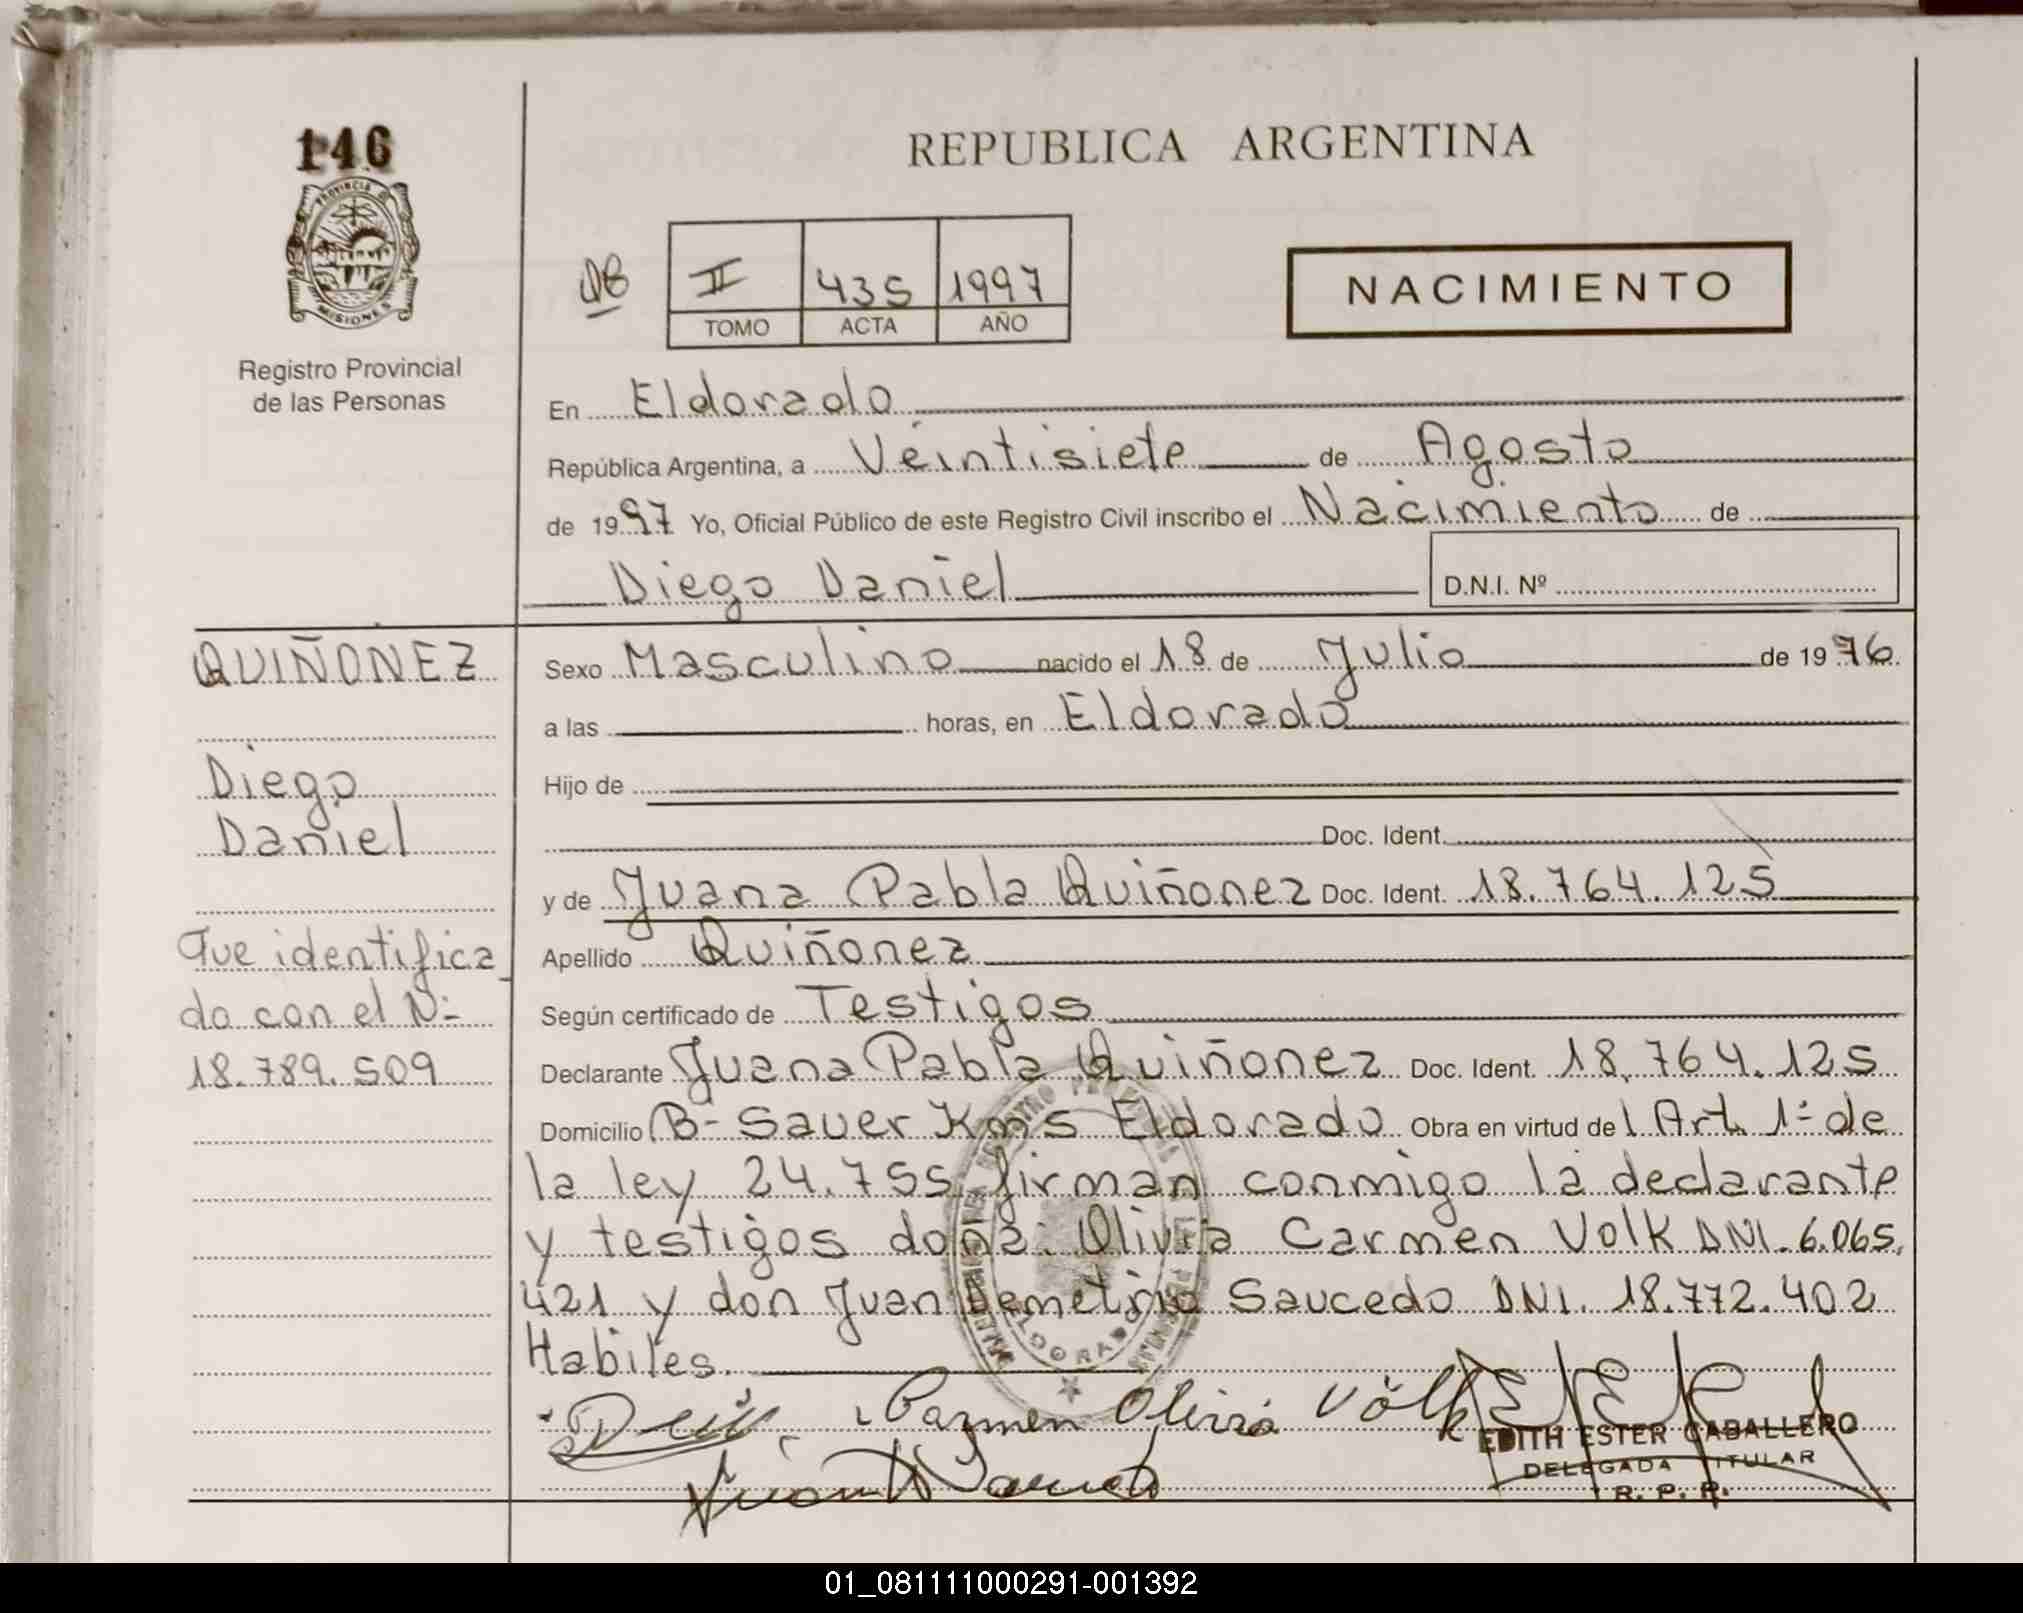 146
PROVINCIA DE
MISIONES
Registro Provincial
de las Personas
REPUBLICA ARGENTINA
II 435 1997
TOMO ACTA AÑO
NACIMIENTO
En Eldorado
República Argentina, a Veintisiete de Agosto
de 1997 Yo, Oficial Público de este Registro Civil inscribo el Nacimiento de
Diego Daniel D.N.I. Nº
QUIÑONEZ
Diego
Daniel
Que identifica
do con el Nº
18.789.509
Sexo Masculino nacido el 18 de Julio de 1976
a las horas, en Eldorado
Hijo de
Doc. Ident.
y de Juana Pabla Quiñonez Doc. Ident. 18.764.125
Apellido Quiñonez
Según certificado de Testigos
Declarante Juana Pabla Quiñonez Doc. Ident. 18.764.125
Domicilio Bº Sauer Km5 Eldorado Obra en virtud del Art. 1º de
la ley 24.755 firman conmigo la declarante
y testigos doña. Olivia Carmen Volk DNI. 6.065.
421 y don Juan Demetrio Saucedo DNI. 18.772.402
Habiles.
ELDORADO
Carmen Olivia Volk
EDITH ESTER CABALLERO
DELEGADA TITULAR
R. P. P.
01_081111000291-001392